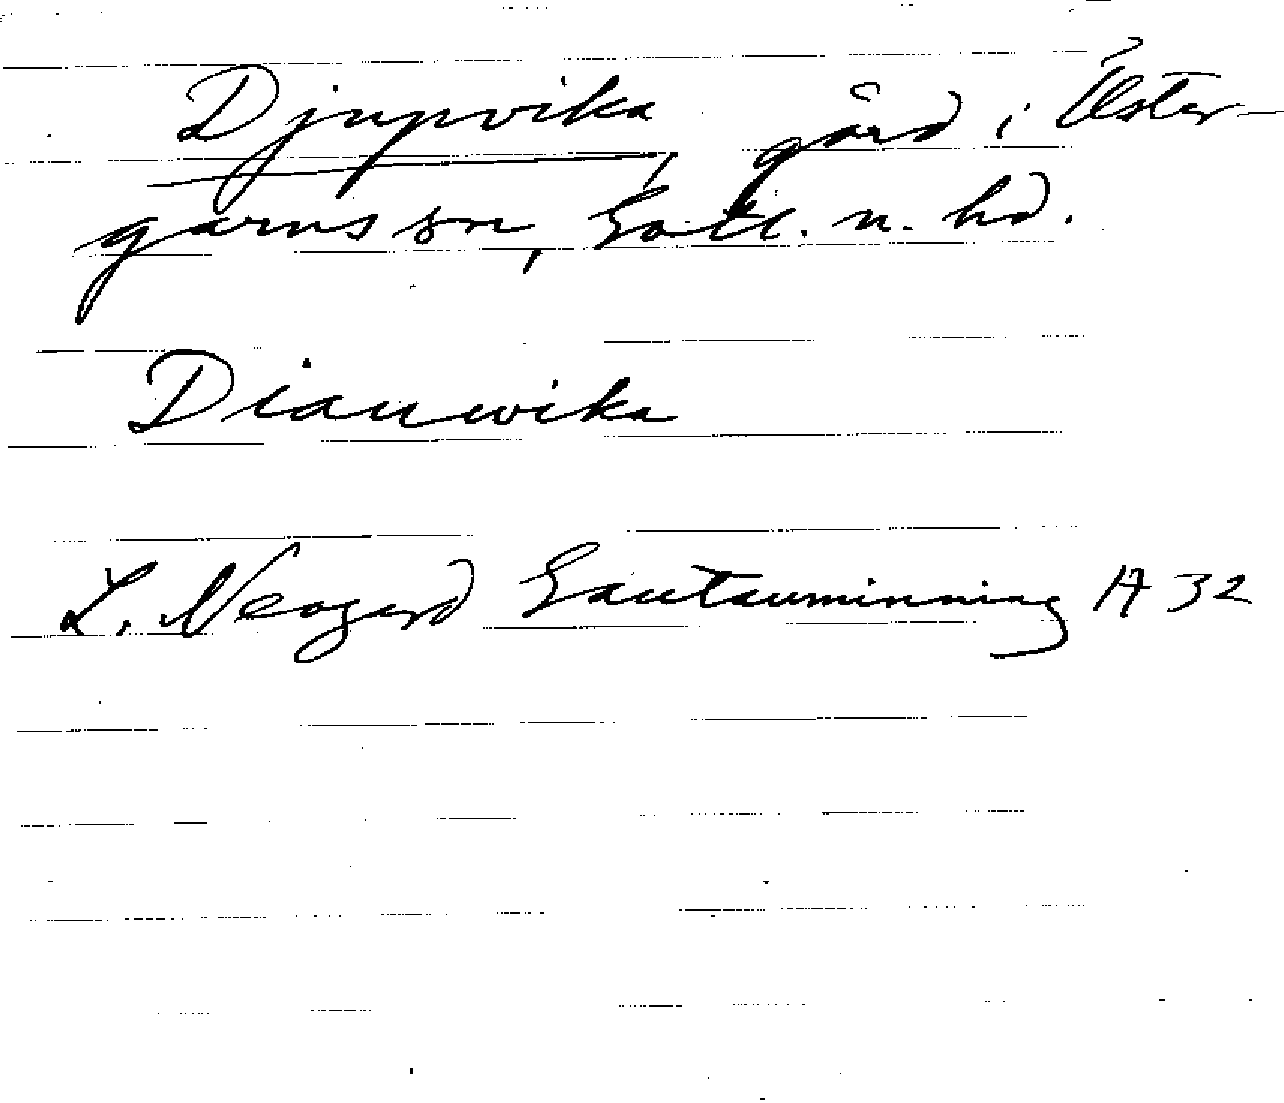 Djupvika, gård i Öster-
garns sn, Gotl. n. hd.
Diauvika
L. Neogard Gautauminning A 32